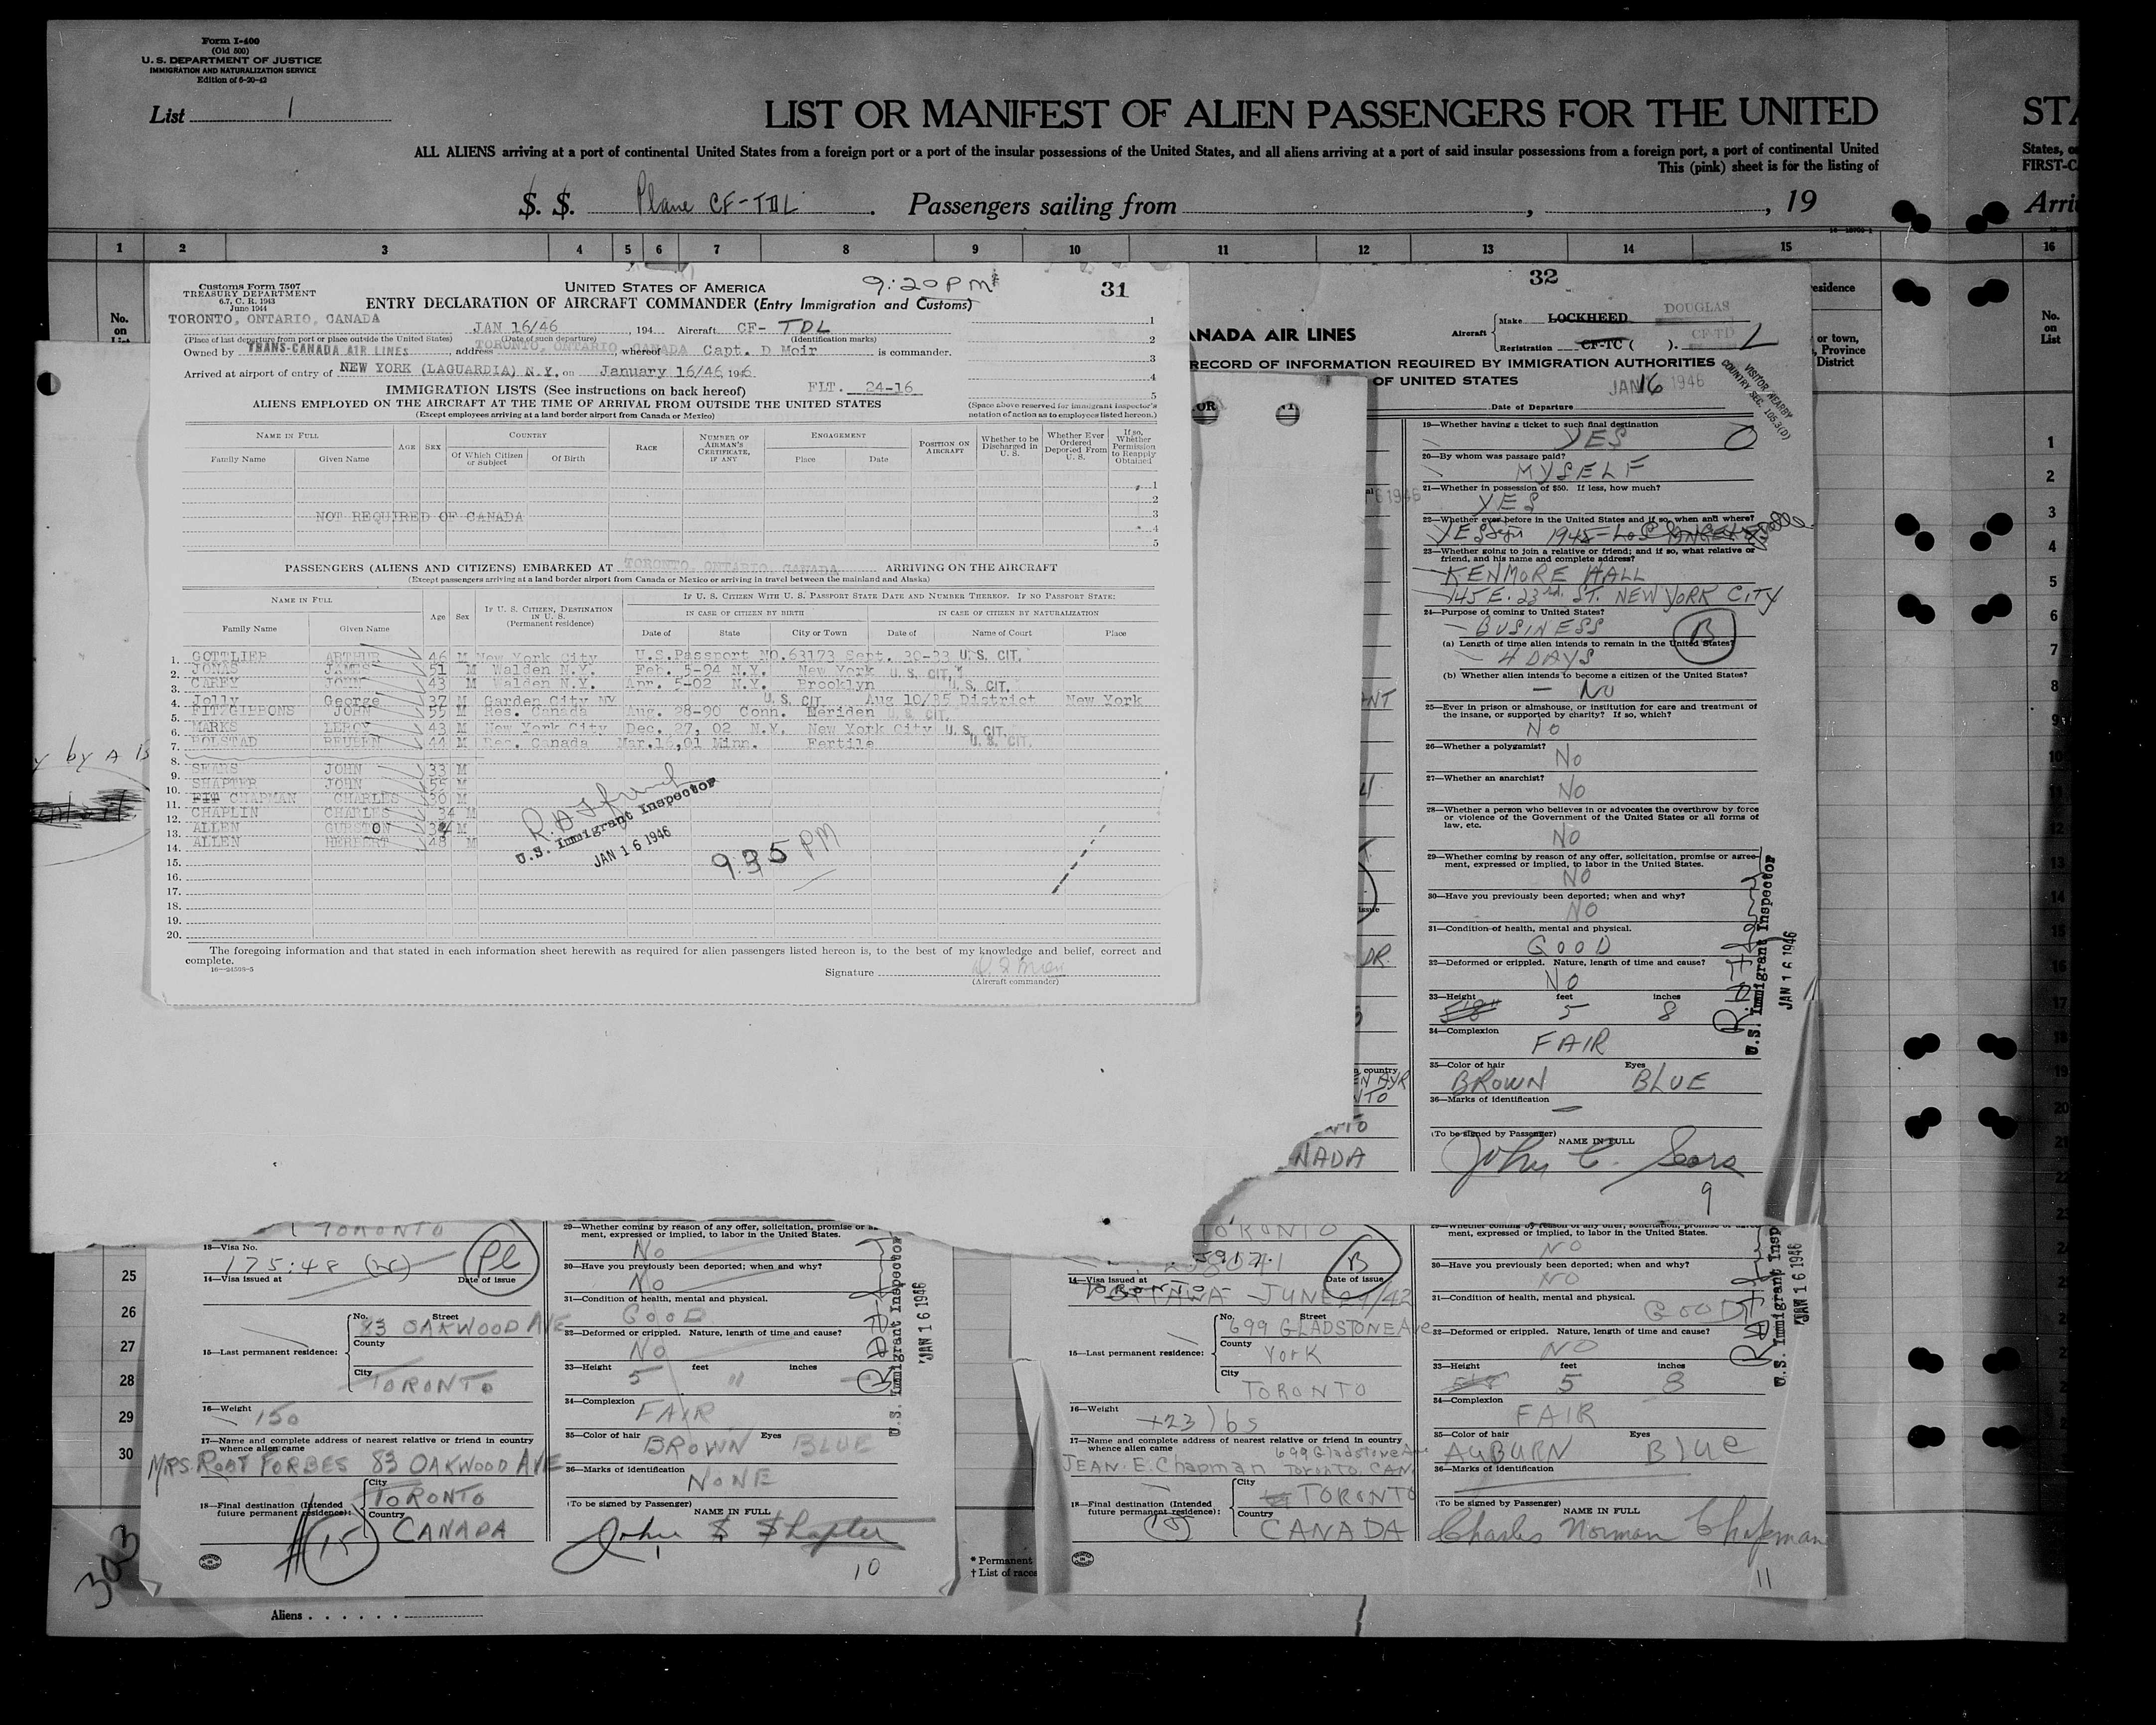 Form I-400
(Old 500)
U. S. DEPARTMENT OF JUSTICE
IMMIGRATION AND NATURALIZATION SERVICE
Edition of 6-20-42
List 1
LIST OR MANIFEST OF ALIEN PASSENGERS FOR THE UNITED
ALL ALIENS arriving at a port of continental United States from a foreign port or a port of the insular possessions of the United States, and all aliens arriving at a port of said insular possessions from a foreign port, a port of continental United
This (pink) sheet is for the listing of
S. S. Plane CF-TDL. Passengers sailing from , , 19
States,
FIRST-C
1 2 3 4 5 6 7 8 9 10 11 12 13 14 15 16
No.
on
List
Customs Form 7507
TREASURY DEPARTMENT
6.7, C. R. 1943
June 1944
UNITED STATES OF AMERICA
9:20 PM
31
ENTRY DECLARATION OF AIRCRAFT COMMANDER (Entry Immigration and Customs)
TORONTO, ONTARIO, CANADA JAN 16/46, 194 Aircraft CF- TDL
(Place of last departure from port or place outside the United States) (Date of such departure) (Identification marks)
Owned by TRANS-CANADA AIR LINES, address TORONTO, ONTARIO, CANADA whereof Capt. D Moir is commander.
Arrived at airport of entry of NEW YORK (LAGUARDIA) N.Y. on January 16/46 1946.
IMMIGRATION LISTS (See instructions on back hereof) FLT. 24-16
ALIENS EMPLOYED ON THE AIRCRAFT AT THE TIME OF ARRIVAL FROM OUTSIDE THE UNITED STATES
(Except employees arriving at a land border airport from Canada or Mexico)
(Space above reserved for immigrant inspector's notation of action as to employees listed hereon.)
NAME IN FULL AGE SEX COUNTRY RACE NUMBER OF AIRMAN'S CERTIFICATE, IF ANY ENGAGEMENT POSITION ON AIRCRAFT Whether to be Discharged in U. S. Whether Ever Ordered Deported From U. S. If so, Whether Permission to Reapply Obtained
Family Name Given Name Of Which Citizen or Subject Of Birth Place Date
NOT REQUIRED OF CANADA
PASSENGERS (ALIENS AND CITIZENS) EMBARKED AT TORONTO, ONTARIO, CANADA ARRIVING ON THE AIRCRAFT
(Except passengers arriving at a land border airport from Canada or Mexico or arriving in travel between the mainland and Alaska)
NAME IN FULL Age Sex IF U. S. CITIZEN, DESTINATION IN U. S. (Permanent residence) IF U. S. CITIZEN WITH U. S. PASSPORT STATE DATE AND NUMBER THEREOF. IF NO PASSPORT STATE:
IN CASE OF CITIZEN BY BIRTH IN CASE OF CITIZEN BY NATURALIZATION
Family Name Given Name Date of State City or Town Date of Name of Court Place
1. GOTTLIEB ARTHUR 46 M New York City U.S.Passport NO.63173 Sept. 20-33 U.S. CIT.
2. JONAS JAMES 51 M Walden N.Y. Feb. 5-94 N.Y. New York U.S. CIT.
3. CAREY JOHN 43 M Walden N.Y. Apr. 5-02 N.Y. Brooklyn U.S. CIT.
4. Jolly George 37 M Garden City NY U.S. CIT. Aug 10/35 District New York
5. FITZGIBBONS JOHN 55 M Res. Canada Aug. 28-90 Conn. Meriden U.S. CIT.
6. MARKS LEROY 43 M New York City Dec. 27, 02 N.Y. New York City U.S. CIT.
7. BOLSTAD REUBEN 44 M Rec. Canada Mar.16,01 Minn. Fertile U.S. CIT.
8.
9. SEARS JOHN 33 M
10. SHAPTER JOHN 55 M
11. FIT CHAPMAN CHARLES 30 M
12. CHAPLIN CHARLES 34 M
13. ALLEN GURSTON M
14. ALLEN HERBERT 48 M
15.
16.
17.
18.
19.
20.
U.S. Immigrant Inspector
JAN 16 1946
9:35 PM
The foregoing information and that stated in each information sheet herewith as required for alien passengers listed hereon is, to the best of my knowledge and belief, correct and
complete.
16—24598-5
Signature
(Aircraft commander)
32
ANADA AIR LINES
Aircraft Make LOCKHEED DOUGLAS
Registration CF-TC ( ). CF-TD L
RECORD OF INFORMATION REQUIRED BY IMMIGRATION AUTHORITIES
OF UNITED STATES
JAN 16 1946
Date of Departure
VISITOR NEARBY
COUNTRY SEC. 105.3(D)
19—Whether having a ticket to such final destination
YES
20—By whom was passage paid?
MYSELF
21—Whether in possession of $50. If less, how much?
YES
22—Whether ever before in the United States and if so, when and where?
YES 1945-LOS ANGELES
23—Whether going to join a relative or friend; and if so, what relative or friend, and his name and complete address?
KENMORE HALL
145 E. 23rd. ST. NEW YORK CITY
24—Purpose of coming to United States?
BUSINESS B
(a) Length of time alien intends to remain in the United States?
4 DAYS
(b) Whether alien intends to become a citizen of the United States?
— NO
25—Ever in prison or almshouse, or institution for care and treatment of the insane, or supported by charity? If so, which?
NO
26—Whether a polygamist?
NO
27—Whether an anarchist?
NO
28—Whether a person who believes in or advocates the overthrow by force or violence of the Government of the United States or all forms of law, etc.
NO
29—Whether coming by reason of any offer, solicitation, promise or agreement, expressed or implied, to labor in the United States.
NO
30—Have you previously been deported; when and why?
NO
31—Condition of health, mental and physical.
GOOD
32—Deformed or crippled. Nature, length of time and cause?
NO
33—Height feet inches
5 8
34—Complexion
FAIR
35—Color of hair Eyes
BROWN BLUE
36—Marks of identification
—
(To be signed by Passenger) NAME IN FULL
John C. Sears
9
U.S. Immigrant Inspector
JAN 16 1946
NADA
TORONTO
13—Visa No.
175:48 Pl
14—Visa issued at Date of issue
15—Last permanent residence:
No. Street
83 OAKWOOD AVE
County
City
TORONTO
16—Weight
150
17—Name and complete address of nearest relative or friend in country whence alien came
MRS. ROBT FORBES 83 OAKWOOD AVE
18—Final destination (Intended future permanent residence):
City
TORONTO
Country
CANADA
15
29—Whether coming by reason of any offer, solicitation, promise or
ment, expressed or implied, to labor in the United States.
No
30—Have you previously been deported; when and why?
No
31—Condition of health, mental and physical.
GOOD
32—Deformed or crippled. Nature, length of time and cause?
No
33—Height feet inches
5 11
34—Complexion
FAIR
35—Color of hair Eyes
BROWN BLUE
36—Marks of identification
NONE
(To be signed by Passenger) NAME IN FULL
John S Shapter
10
U.S. Immigrant Inspector
JAN 16 1946
TORONTO
B
14—Visa issued at Date of issue
OTTAWA - JUNE 29/42
15—Last permanent residence:
No. Street
699 GLADSTONE Ave
County
York
City
TORONTO
16—Weight
123 lbs
17—Name and complete address of nearest relative or friend in country whence alien came
699 Gladstone Ave
JEAN. E. Chapman Toronto, CAN.
18—Final destination (Intended future permanent residence):
City
TORONTO
Country
CANADA
15
ment, expressed or implied, to labor in the United States.
NO
30—Have you previously been deported; when and why?
NO
31—Condition of health, mental and physical.
GOOD
32—Deformed or crippled. Nature, length of time and cause?
NO
33—Height feet inches
5 8
34—Complexion
FAIR
35—Color of hair Eyes
AUBURN Blue
36—Marks of identification
(To be signed by Passenger) NAME IN FULL
Charles Norman Chapman
11
U.S. Immigrant Insp
JAN 16 1946
25
26
27
28
29
30
303
* Permanent
† List of races
Aliens